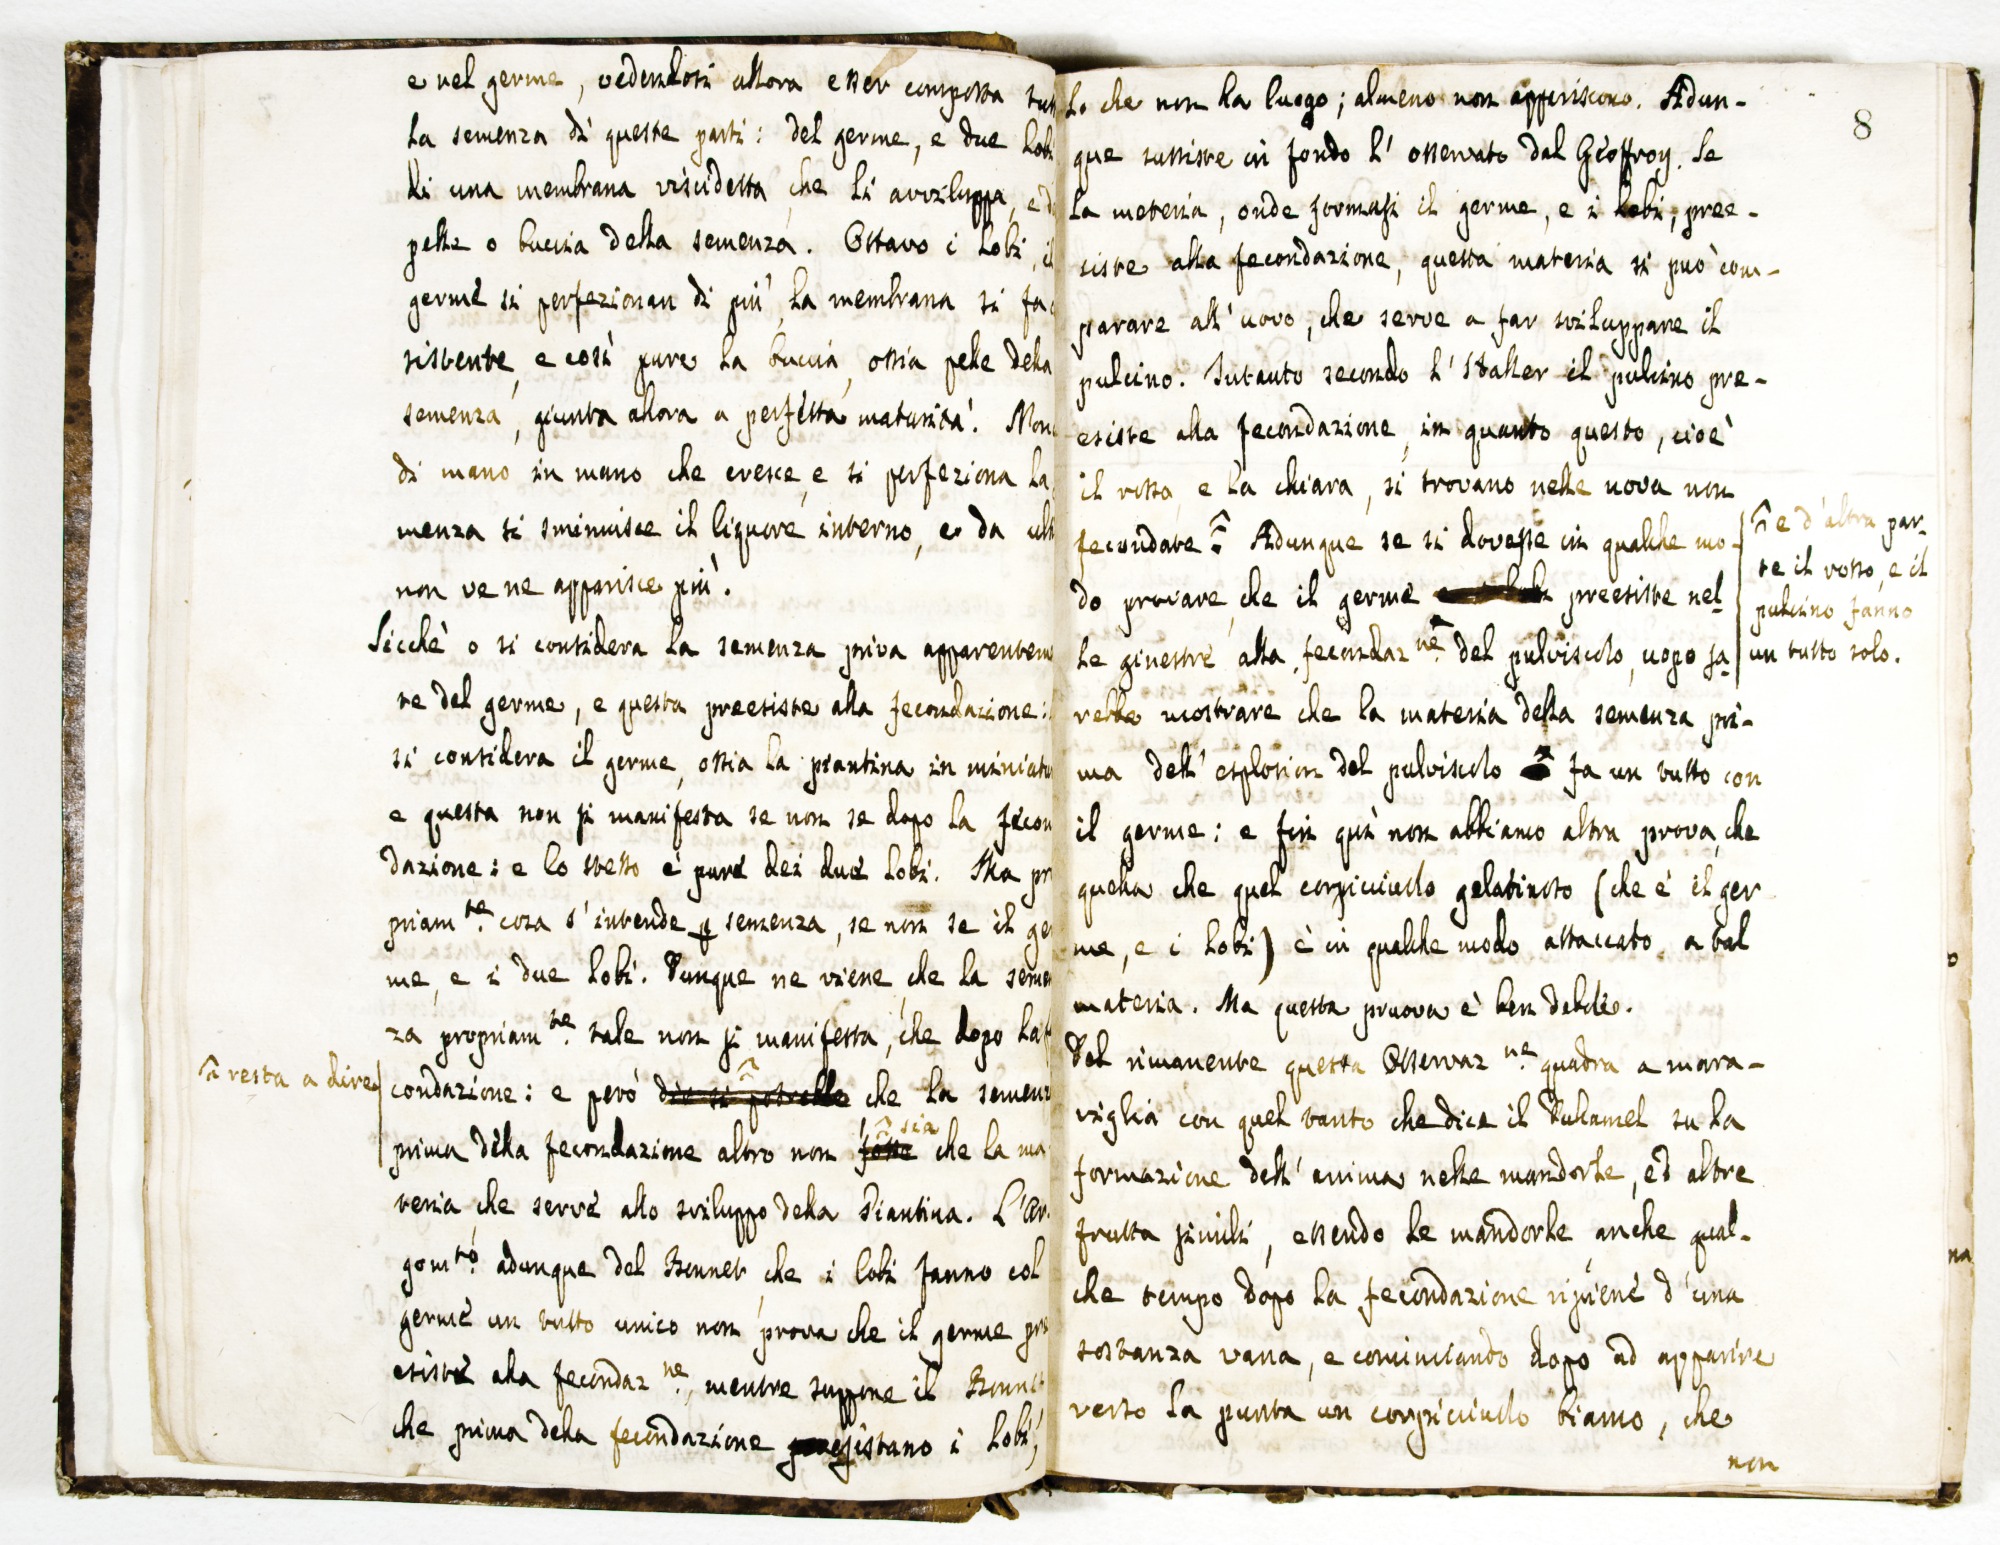 e nel germe, vedendosi allora esser composta tut
la semenza di queste parti: del germe, e due lobi
di una membrana viscidetta che li avviluppa, e d
pelle o buccia della semenza. Ottavo i lobi, il
germe si perfezionan di più, la membrana si fa
sistente, e così pure la buccia, ossia pelle della
semenza, giunta allora a perfetta maturità. Nono
di mano in mano che cresce, e si perfeziona la
menza si sminuisce il liquore interno, e da ult
non ve ne apparisce più.
Sicchè o si considera la semenza priva apparentem
te del germe, e questa preesiste alla fecondazione:
si considera il germe, ossia la piantina in miniatu
e questa non si manifesta se non se dopo la fecon
dazione: e lo stesso è pure dei due lobi. Ma pr
priam.te cosa s'intende p semenza, se non se il ger
me, e i due lobi. Dunque ne viene, che la semen
za propriam.te tale non si manifesta, che dopo la f
^ resta a dire
condazione: e però dir si potrebbe ^ che la semenz
prima della fecondazione altro non fosse ^ sia che la ma
teria che serve allo sviluppo della Piantina. L'Ar.
gom.to adunque del Bonnet, che i lobi fanno col
germe un tutto unico non prova che il germe pre
esiste alla fecondaz.ne, mentre suppone il Bonnet
che prima della fecondazione esistano i lobi,
8
lo che non ha luogo; almeno non appariscono. Adun-
que sussiste in fondo l'osservato dal Geoffroy. Se
la meteria, onde formasi il germe, e i lobi, pree-
siste alla fecondazione, questa materia si può com-
parare all'uovo, che serve a far sviluppare il
pulcino. Intanto secondo l'Haller il pulcino pre-
esiste alla fecondazione, in quanto questo, cioè
il rosso, e la chiara, si trovano nelle uova non
fecondate ^. Adunque se si dovesse in qualche mo-
^ e d'altra par-
te il rosso, e il
pulcino fanno
un tutto solo.
do provare, che il germe preesiste nel-
le ginestre alla fecondaz.ne del pulviscolo, uopo sa-
rebbe mostrare che la materia della semenza pri-
ma dell'esplosion del pulviscolo fa un tutto con
il germe: e fin quì non abbiamo altra prova, che
quella che quel corpicciuolo gelatinoso (che è il ger
me, e i lobi) è in qualche modo attaccato a tal
materia. Ma questa pruova è ben debole.
Del rimanente questa Osservaz.ne quadra a mara-
viglia con quel tanto che dice il Duhamel su la
formazione dell'anima nelle mandorle, ed altre
frutta simili, essendo le mandorle anche qual-
che tempo dopo la fecondazione ripiene d'una
sostanza vana, e cominciando dopo ad apparire
verso la punta un corpicciuolo biamo, che
non